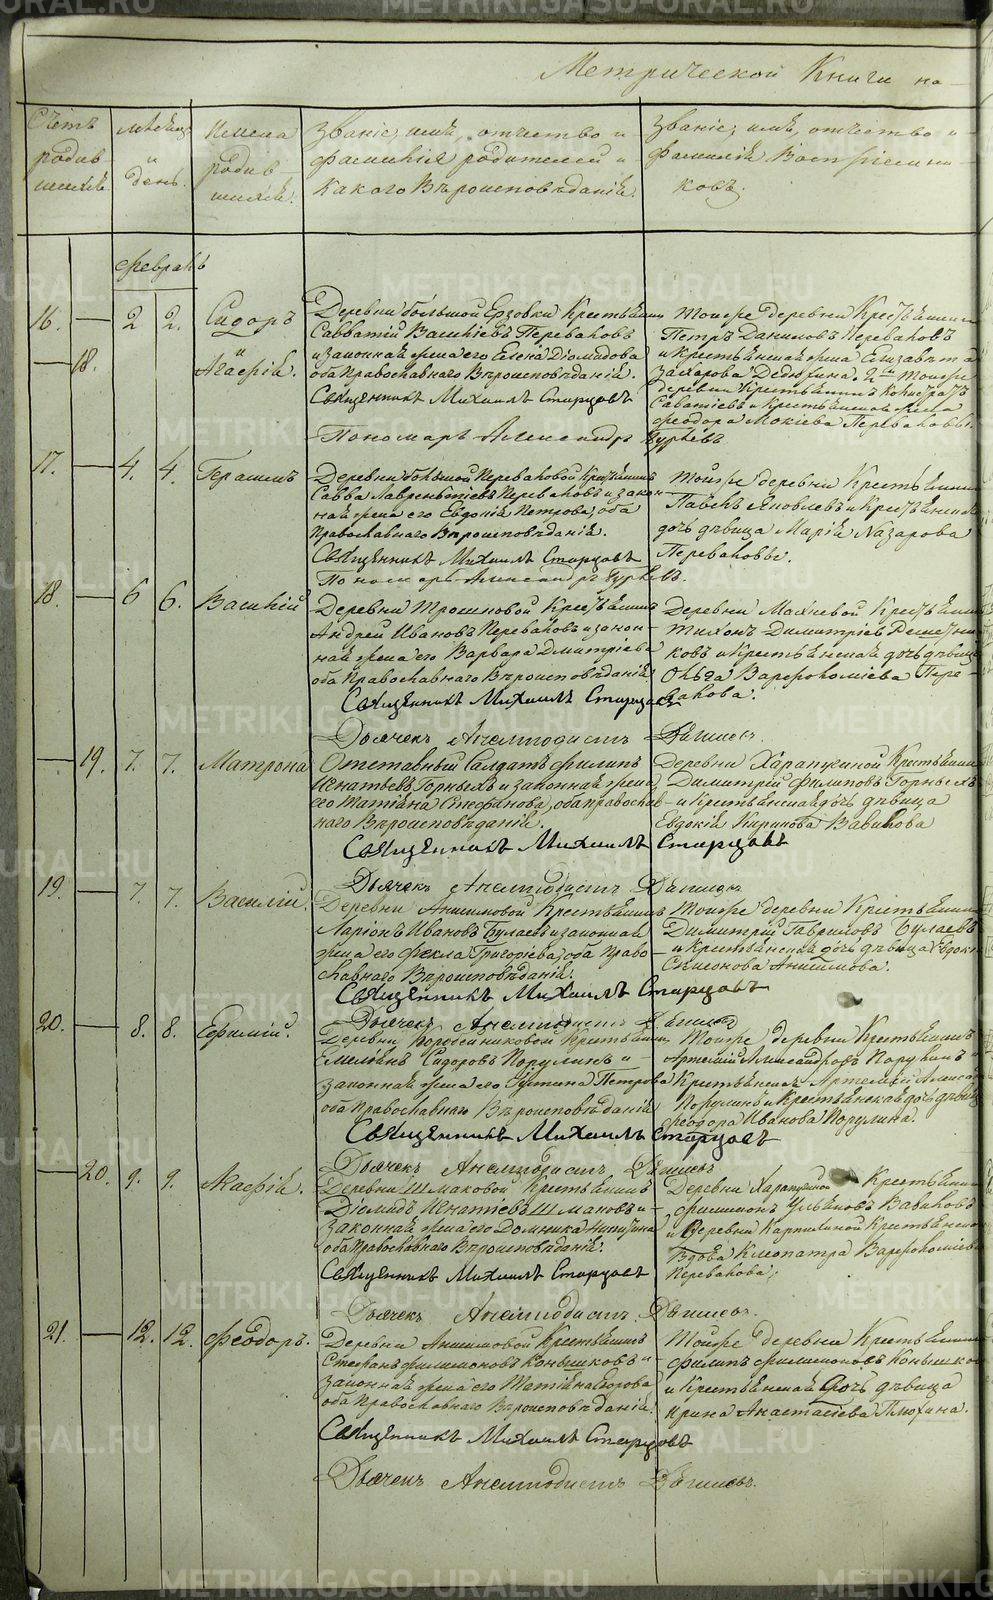 Метрической Книги на
Счетъ родившихся
мѣсяцъ и день.
Имена родившихся.
Званіе, имя, отчество и фамилія родителей и какого Вѣроисповѣданія.
Званіе, имя, отчество и фамилія Воспріемниковъ.
Февраль
16. 2 2. Сидоръ
Деревни большой Ерзовки Крестьянинъ
Савватій Васильевъ Переваловъ
и законная жена его Елена Діомидова
оба Православнаго Вѣроисповѣданія.
Тойже деревни Крестьянинъ
Петръ Даниловъ Переваловъ
и крестьянская жена Елизавета
Захарова Дедюхина. 2й Тойже
деревни Крестьянинъ
Саватіевъ и Крестьянская жена
Феодора Мокіева Переваловы.
18. и Агафія.
Священникъ Михаилъ Старцовъ
Пономарь Александръ Гурьевъ
17. 4. 4. Герасимъ
Деревни большой Переваловой Крестьянинъ
Савва Лаврентьевъ Переваловъ и закон-
ная жена его Евдокія Петрова, оба
Православнаго Вѣроисповѣданія.
Тойже деревни Крестьянинъ
Павелъ Яковлевъ и Крестьянская
дочь дѣвица Марія Назарова
Переваловы.
Священникъ Михаилъ Старцовъ
Пономарь Александръ Гурьевъ.
18. 6 6. Василій
Деревни Трошковой Крестьянинъ
Андрей Ивановъ Переваловъ и закон-
ная жена его Варвара Дмитріева
оба Православнаго Вѣроисповѣданія
Деревни Махневой Крестьянинъ
Тихонъ Димитріевъ Решетни-
ковъ и крестьянская дочь дѣвица
Ольга Варфоломіева Пере-
валова.
Священникъ Михаилъ Старцовъ
Дьячекъ Анемподистъ Дягилевъ.
19. 7. 7. Матрона
Отставный Салдатъ Филипъ
Игнатьевъ Горныхъ и законная жена
его Татіяна Стефанова, оба православ-
наго Вѣроисповѣданія.
Деревни Харапугиной Крестьянинъ
Димитрій Филиповъ Горныхъ
и Крестьянская дочь дѣвица
Евдокія Кирилова Вавилова
Священникъ Михаилъ Старцовъ
Дьячекъ Анемподистъ Дягилевъ
19. 7. 7. Василій.
Деревни Анисимовой Крестьянинъ
Ларіонъ Ивановъ Булаевъ и законная
жена его Фекла Григорьева, оба Право-
славнаго Вѣроисповѣданія.
Тойже деревни Крестьянинъ
Димитрій Гавриловъ Булаевъ
и крестьянская дочь дѣвица Евдокія
Симонова Анисимова.
Священникъ Михаилъ Старцовъ
Дьячекъ Анемподистъ Дягилевъ
20. 8. 8. Ефимій.
Деревни Коробейниковой Крестьянинъ
Емеліянъ Сидоровъ Порулинъ и
законная жена его Устина Петрова
оба Православнаго Вѣроисповѣданія
Тойже деревни Крестьянинъ
Артемій Александровъ Порулинъ и
Порулинъ и Крестьянская дочь дѣвица
Феодора Иванова Порулина.
Священникъ Михаилъ Старцовъ
Дьячекъ Анемподистъ Дягилевъ
20. 9. 9. Агафія.
Деревни Шмаковой Крестьянинъ
Діомидъ Игнатьевъ Шмаковъ и
законная жена его Домника Никитина
оба Православнаго Вѣроисповѣданія.
Деревни Харапугиной Крестьянинъ
Филимонъ Ульяновъ Вавиловъ
и Деревни Карпихиной Крестьянская
Вдова Клеопатра Варфоломіева
Перевалова.
Священникъ Михаилъ Старцовъ
Дьячекъ Анемподистъ Дягилевъ.
21. 12. 12. Феодоръ.
Деревни Анисимовой Крестьянинъ
Стефанъ Филимоновъ Конышковъ и
законная жена его Татіяна Егорова,
оба Православнаго Вѣроисповѣданія.
Тойже деревни Крестьянинъ
Филипъ Филимоновъ Конышковъ
и Крестьянская дочь дѣвица
Ирина Анастасіева Плюхина.
Священникъ Михаилъ Старцовъ
Дьячекъ Анемподистъ Дягилевъ.
METRIKI.GASO-URAL.RU